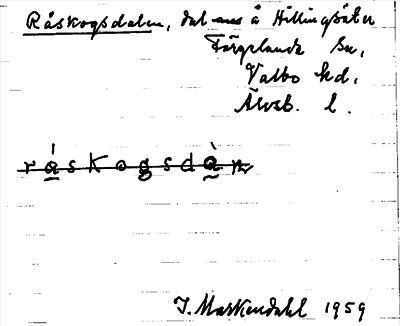 Råskogsdalen, dal ~~ms~~ å Hillingsäter
Färgelanda sn,
Valbo hd.
Älvsb. l.
råskogsdàn
J. Markendahl 1959